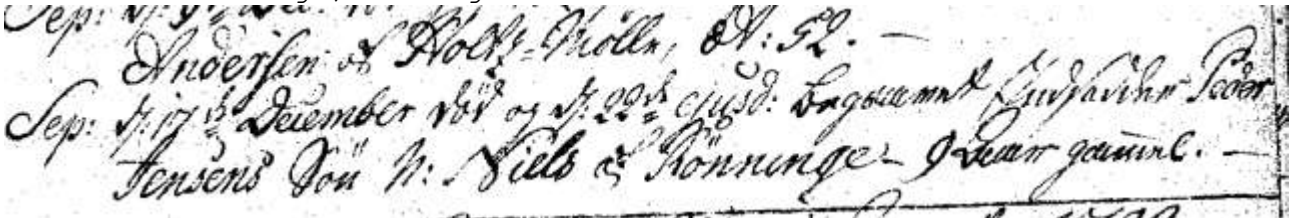 Sep: d: Dec:
Andersen af Holts-Mølle, Æt: 52. —
Sep: d: 17de December död og d: 22de ejusd: begravet Indsidder Peder
Jensens Sön N: Niels af Rönninge – 9 Uger gammel. —